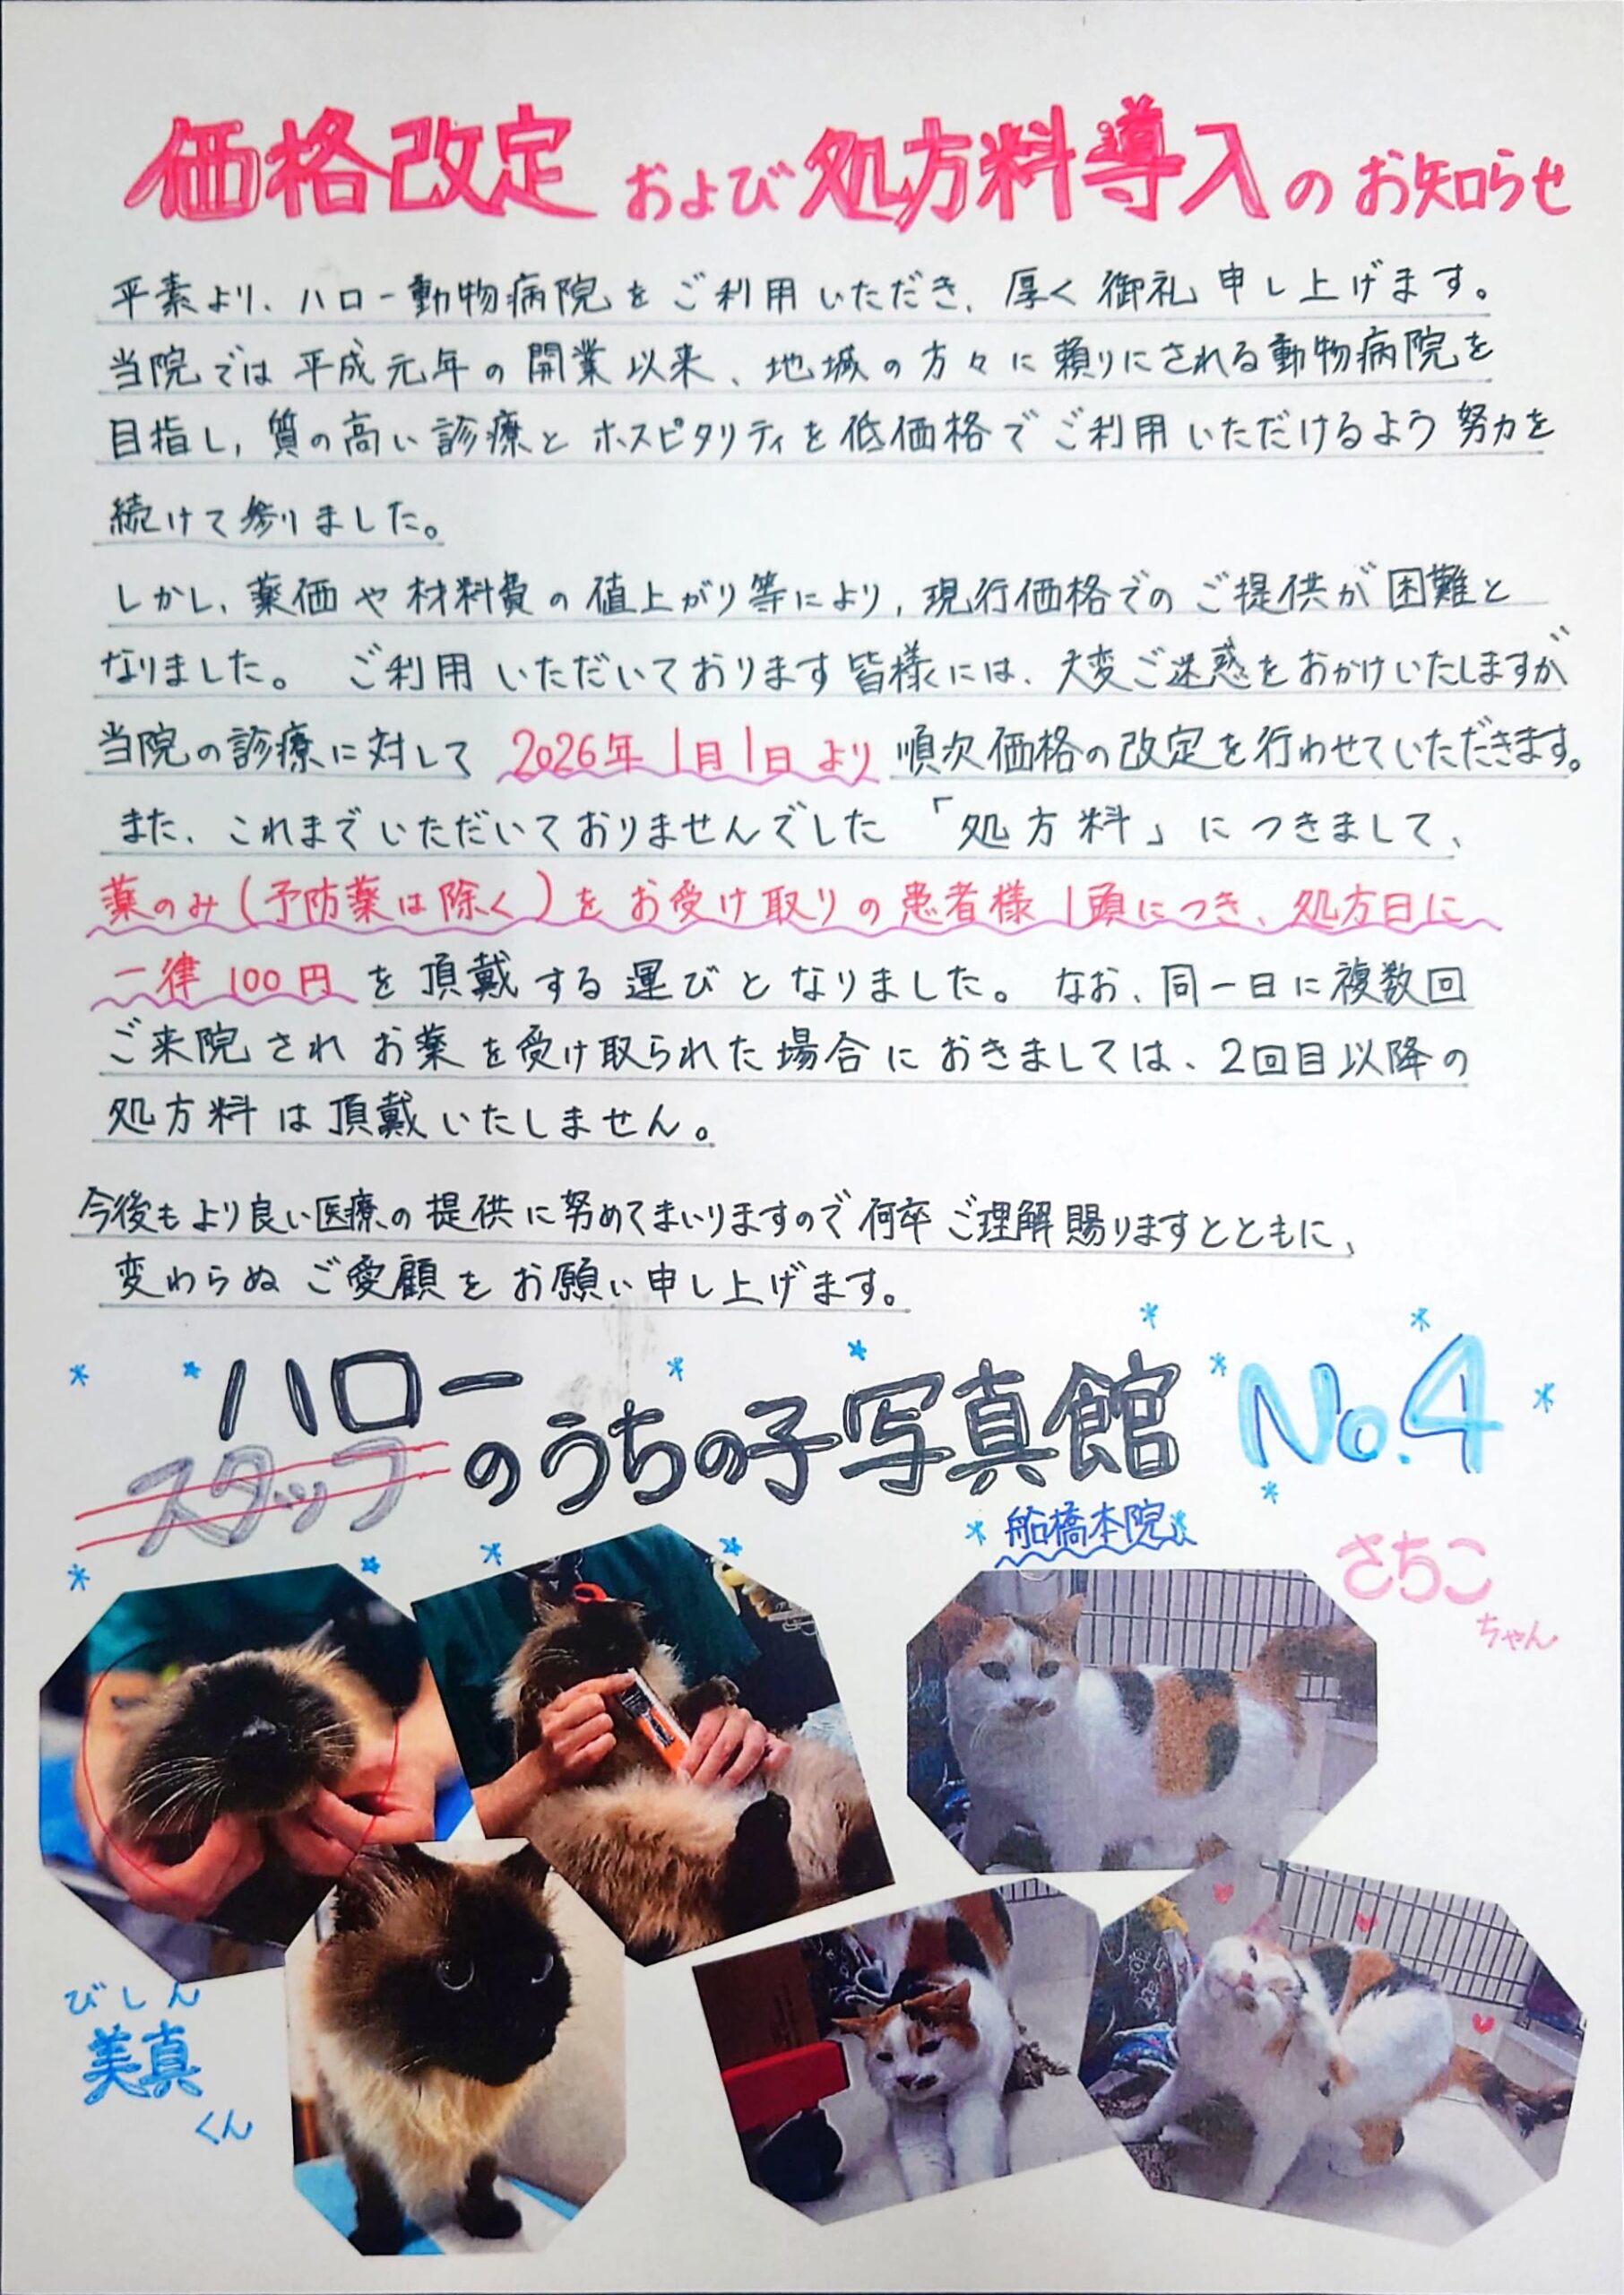 価格改定および処方料導入のお知らせ
平素より、ハロー動物病院をご利用いただき、厚く御礼申し上げます。
当院では平成元年の開業以来、地域の方々に頼りにされる動物病院を
目指し、質の高い診療とホスピタリティを低価格でご利用いただけるよう努力を
続けて参りました。
しかし、薬価や材料費の値上がり等により、現行価格でのご提供が困難と
なりました。ご利用いただいております皆様には、大変ご迷惑をおかけいたしますが
当院の診療に対して2026年1月1日より順次価格の改定を行わせていただきます。
また、これまでいただいておりませんでした「処方料」につきまして、
薬のみ(予防薬は除く)をお受け取りの患者様1頭につき、処方日に
一律100円を頂戴する運びとなりました。なお、同一日に複数回
ご来院されお薬を受け取られた場合におきましては、2回目以降の
処方料は頂戴いたしません。
今後もより良い医療の提供に努めてまいりますので何卒ご理解賜りますとともに、
変わらぬご愛顧をお願い申し上げます。
ハロー
スタッフ
のうちの子写真館 No.4
船橋本院
さちこ
ちゃん
びしん
美真
くん